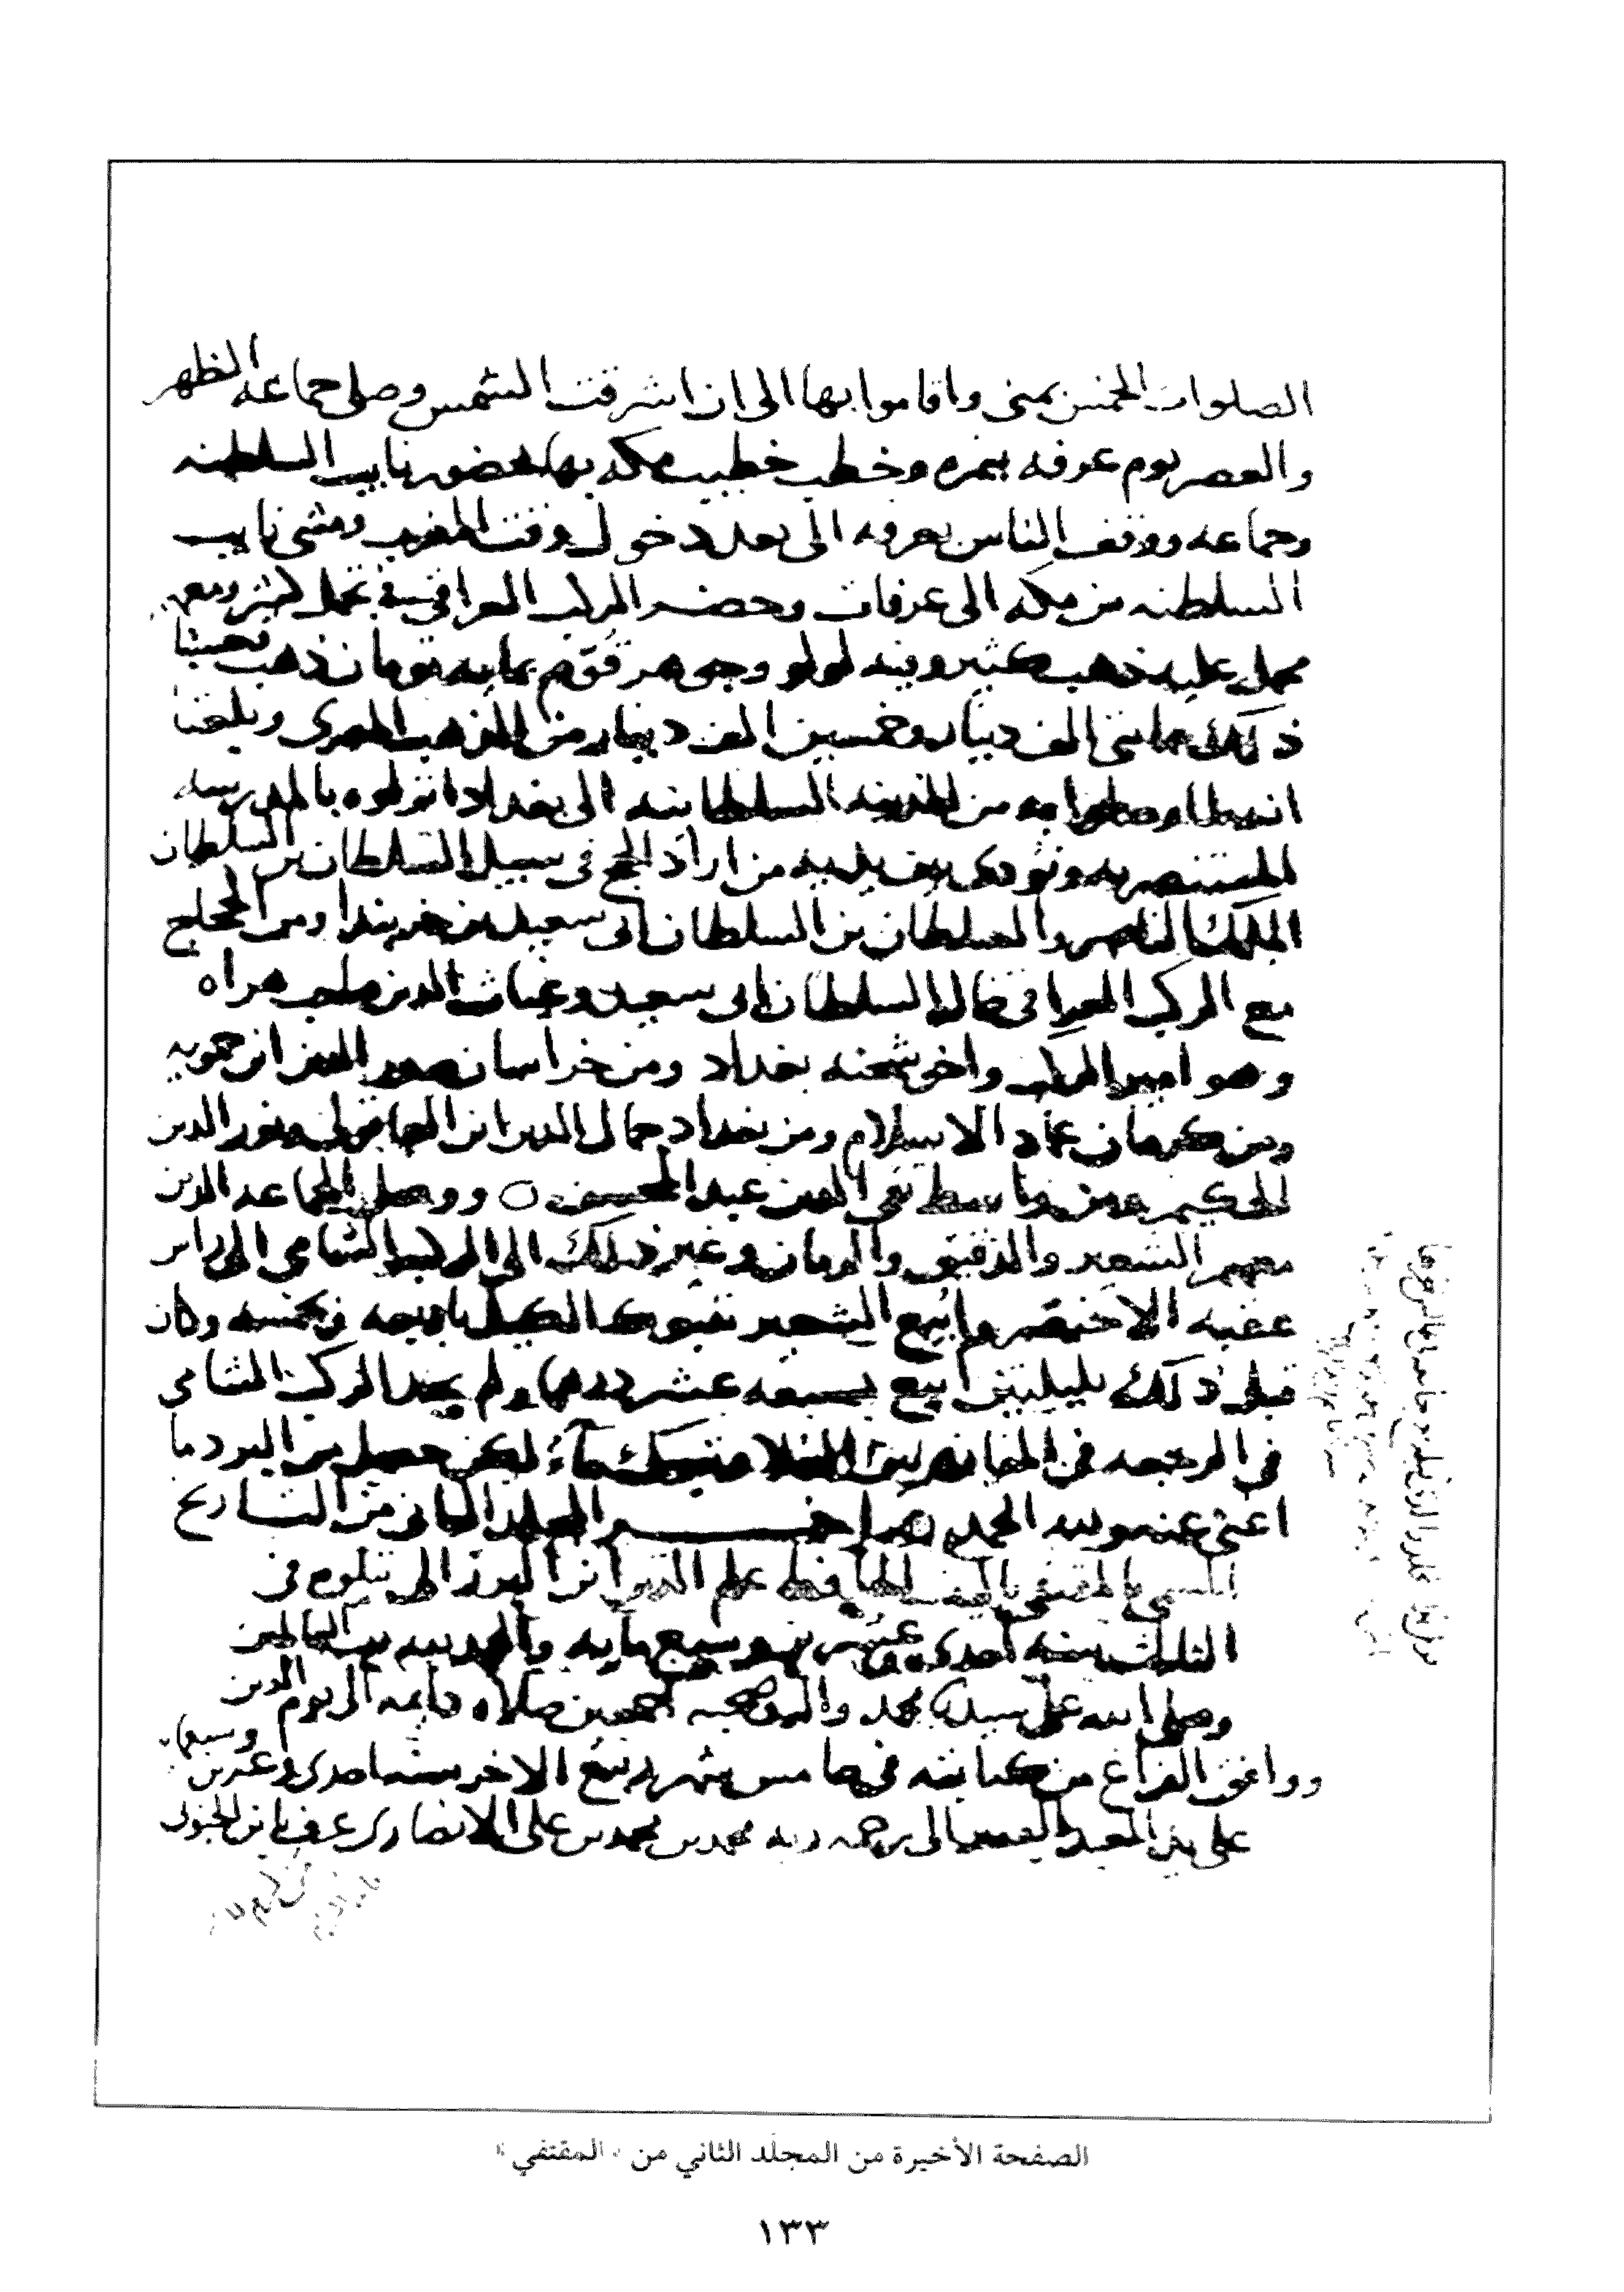 الصلوات الخمس بمنى واقاموا بها الى ان اشرقت الشمس وصلى جماعه الظهر
والعصر يوم عرفه بنمره وخطب خطيب مكه بها بحضور نايب السلطنه
وجماعه ووقف الناس بعرفه الى بعد دخول وقت المغرب ومشى نايب
السلطنه من مكه الى عرفات وحضر الركب العراقي في تجمل كثير ومعهم
محمل عليه ذهب كثير وفيه لولو وجوهر قوّم بمايه تومان ذهب فحسبنا
ذلك مايتى الف دينار وخمسين الف دينار من الذهب المصرى وبلغنا
انه لما وصلوا به من الخزينه السلطانيه الى بغداد انزلوه بالمدرسه
المستنصريه ونودى من اراد الحج في سبيل السلطان بن السلطان
الملك الناصر والسلطان بن السلطان ابى سعيد بن خربندا ومن الحجاج
مع الركب العراقي خال السلطان ابى سعيد وغياث الدين صاحب هراه
وهو امير الركب واخو شحنه بغداد ومن خراسان صدر الدين ابن حمويه
ومن كرمان عماد الاسلام ومن بغداد جمال الدين ابن العاقولى ونور الدين
الحكيم ومن واسط تقى الدين عبد المحسن ووصل الجماعه الذين
معهم الشعير والدقيق والرمان وغير ذلك الى الركب الشامي الى راس
عقبه الاخيضر وابيع الشعير بتبوك الكيل باربعه وبخمسه وكان
قبل ذلك بليلتين ابيع بسبعه عشر درهما ولم يجد الركب الشامي
في الرجعه في المفازه بين العلا وتبوك مآءً لكن حصل من البرد ما
اغنى عنه ولله الحمد هذا اخر المجلد الثانى من التاريخ
المسمى بالمقتفى تاليف الحافظ علم الدين ابن البرزالى يتلوه في
الثالث سنه احدى وعشرين وسبع مايه والحمد لله رب العالمين
وصلى الله على سيدنا محمد واله وصحبه اجمعين صلاه دايمه الى يوم الدين
ووافق الفراغ من كتابته في خامس شهر ربيع الاخر سنه احدى وعشرين وسبعمايه
على يد العبد الفقير الى رحمه ربه محمد بن محمد بن على الانصارى عرف بابن الحنبلى
الصفحة الأخيرة من المجلد الثاني من «المقتفي»
١٣٣